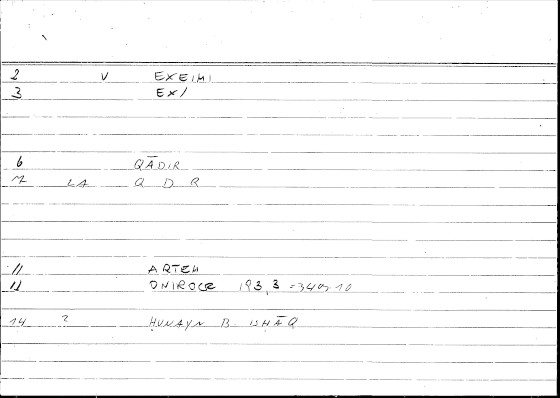 2 V EXEIMI
3 EX/
6 QĀDIR
7 LA Q D R
11 ARTEM
11 ONIROCR 193,3 = 340, 10
14 2 ḤUNAYN B ISḤĀQ